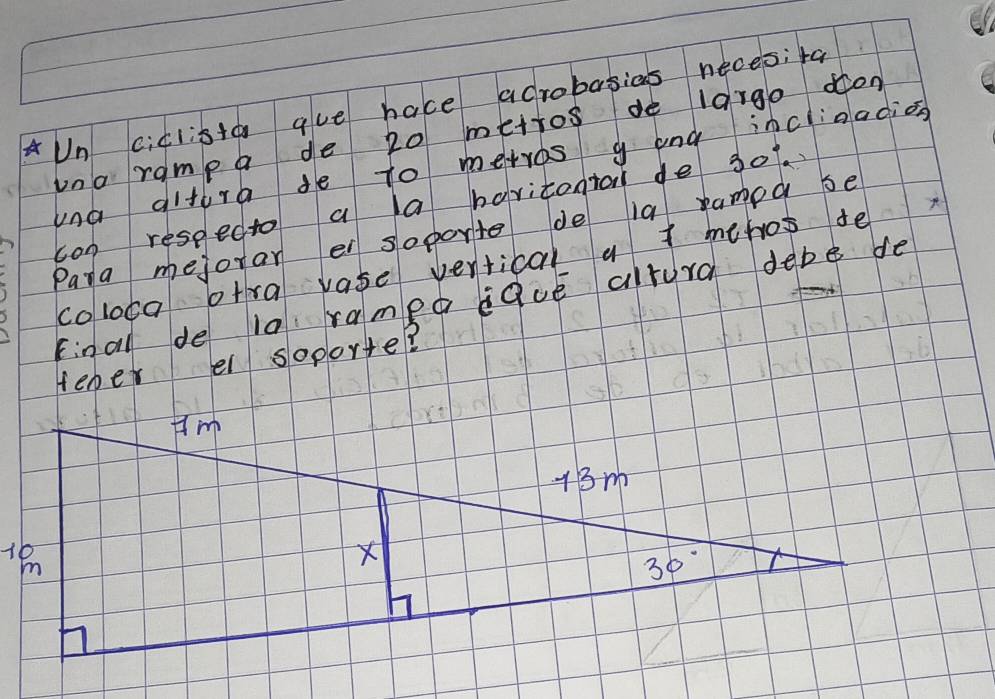 * Un ciclista que hace acrobasias necesita
una rampa de 20 metros de largo con
una altura de 10 metros y una inclinacion
con respecto a la horizontal de 30°.
Para mejorar el soporte de la rampa se
coloca otra vase vertical a 7 metros de
final de la rampa ¿Que altura debe de
tener el soporte?
7m
13m
10
m
x
30°